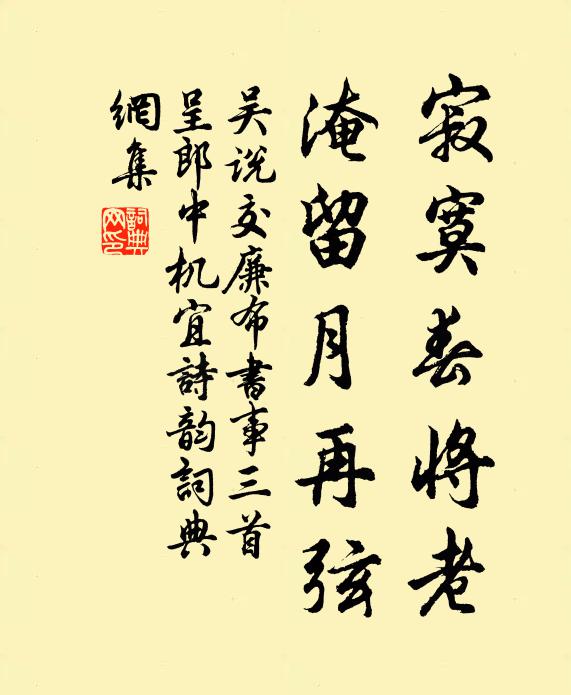 寂寞春將老
淹留月再弦
吴说交廉布書事三首
呈郎中机宜詩韵詞典
網集
詞典
网印